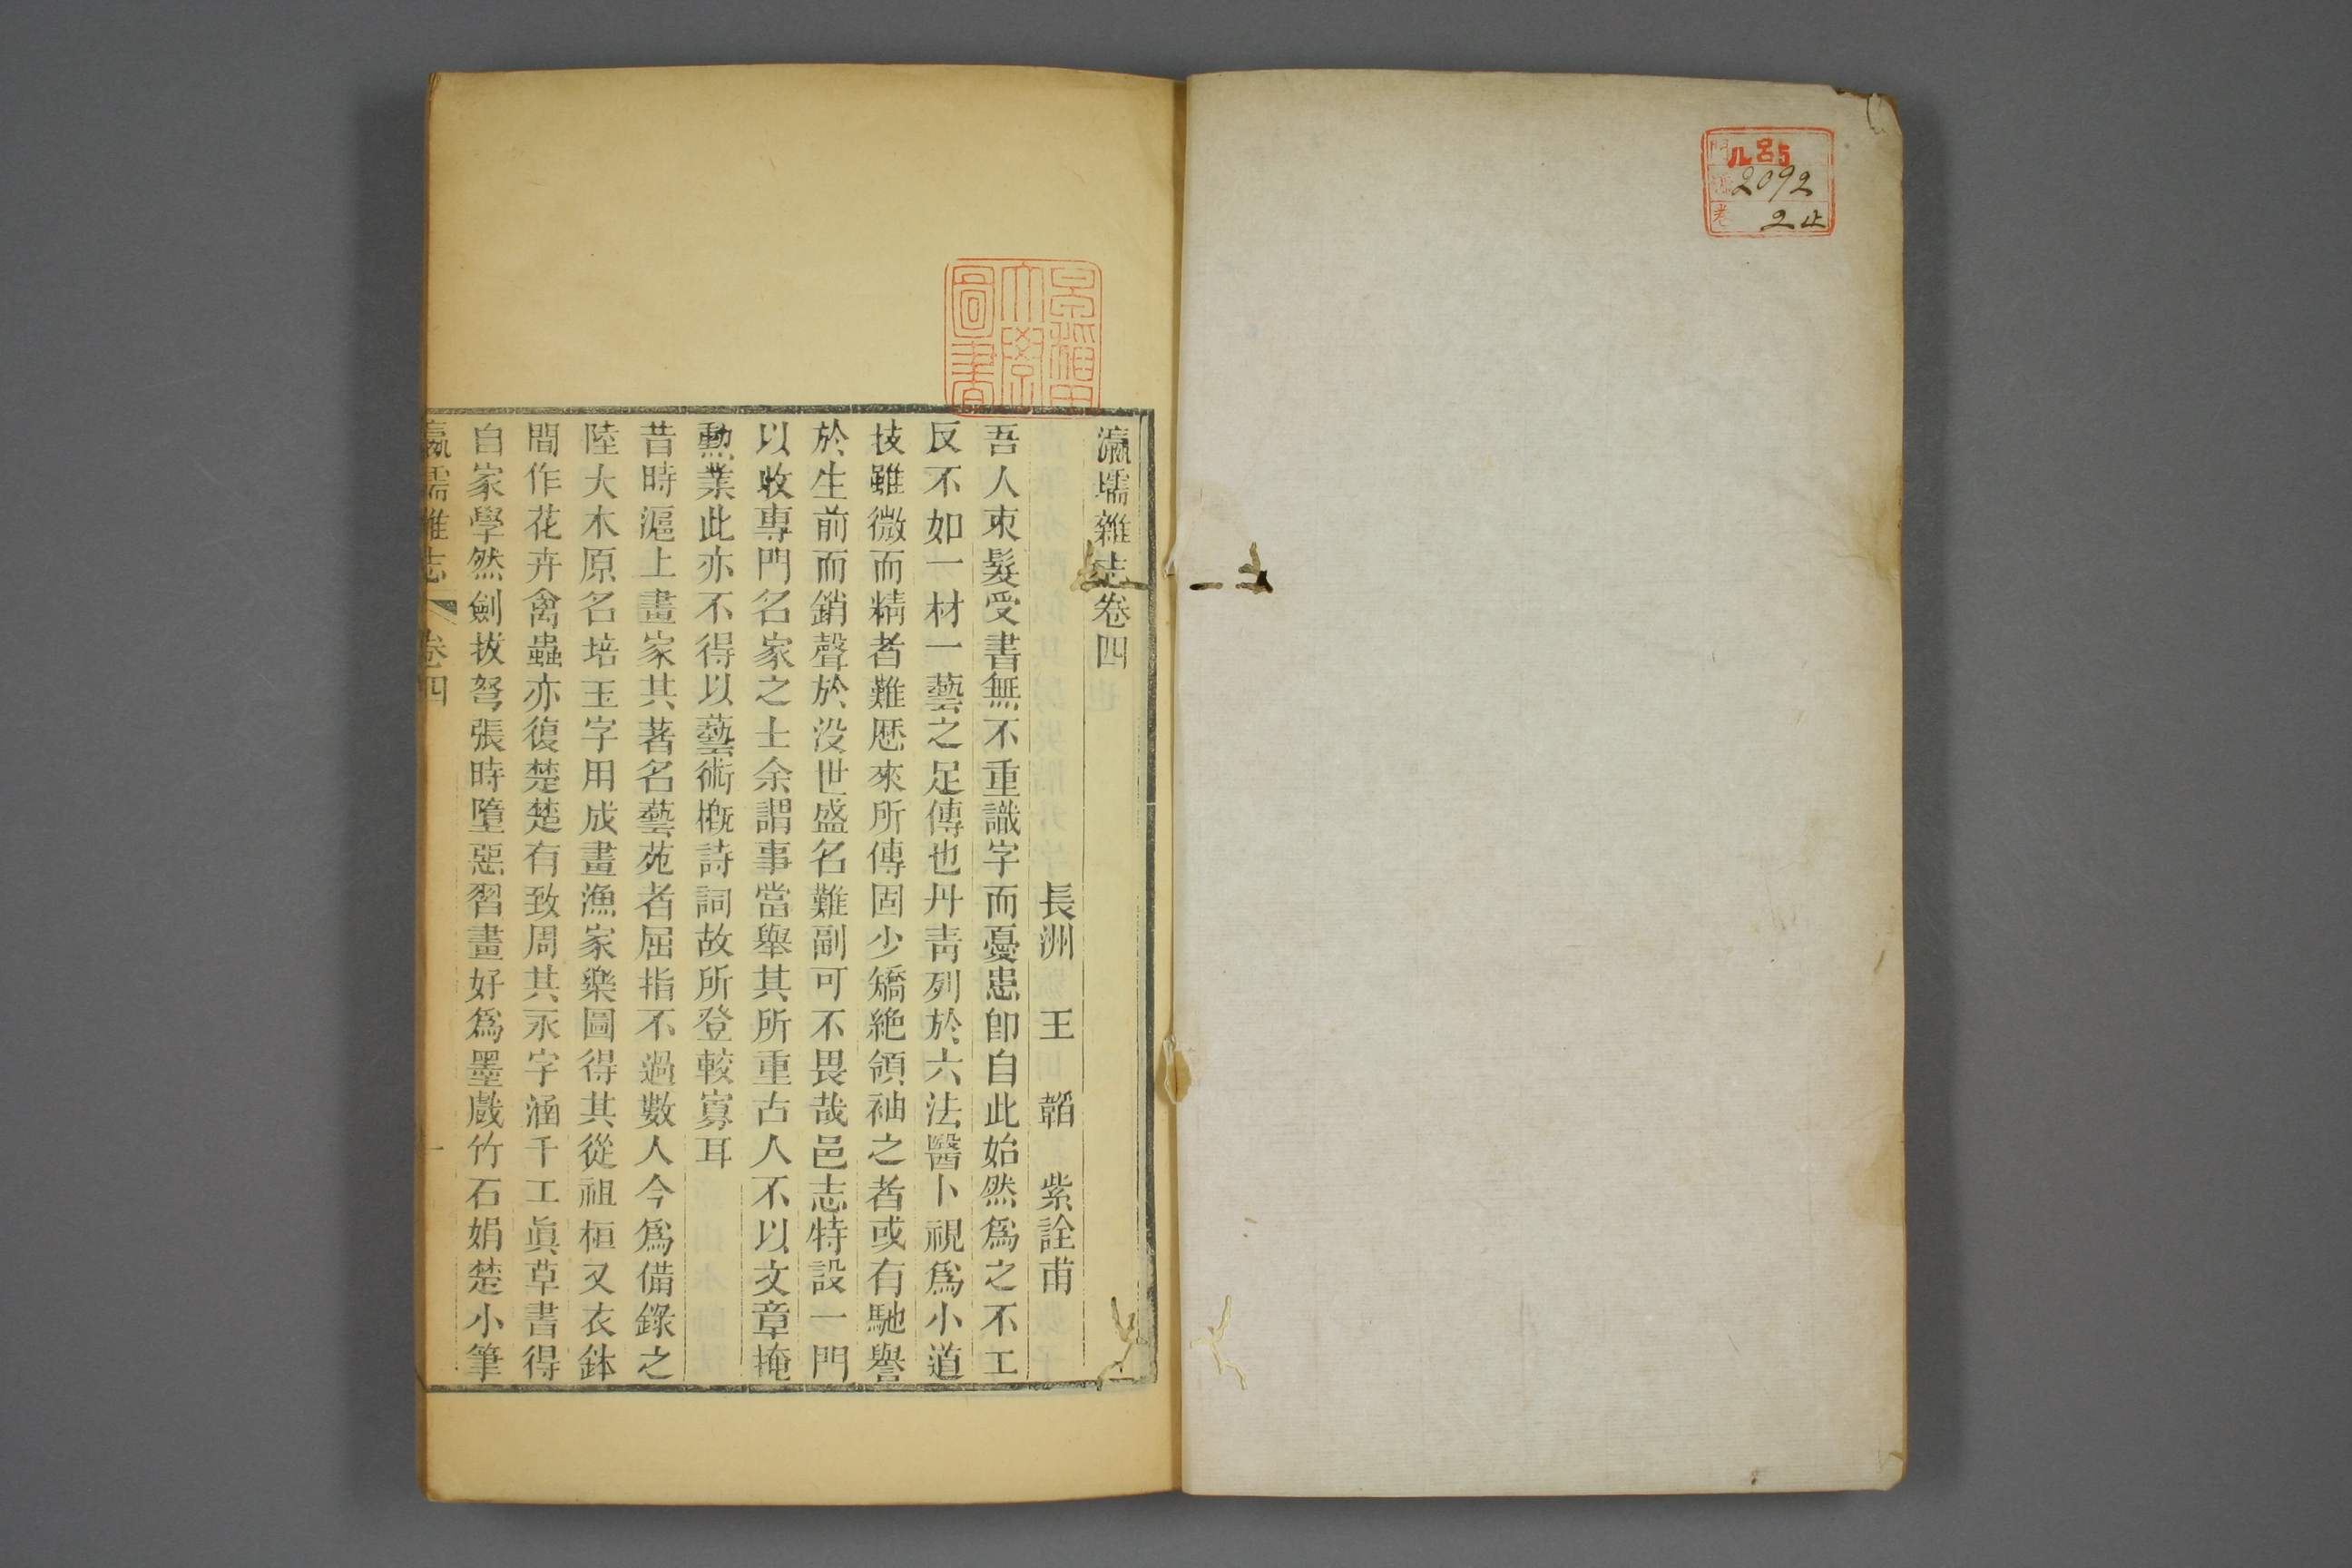 ル5
2092
2止
卷
早稲田
大學
圖書
瀛壖雜志卷四
長洲 王 韜 紫詮甫
吾人束髮受書無不重識字而憂患卽自此始然爲之不工
反不如一材一藝之足傳也丹靑列於六法醫卜視爲小道
技雖微而精者難厯來所傳固少矯絶領袖之者或有馳譽
於生前而銷聲於没世盛名難副可不畏哉邑志特設一門
以收專門名家之士余謂事當舉其所重古人不以文章掩
勳業此亦不得以藝術槪詩詞故所登較寡耳
昔時滬上畫家其著名藝苑者屈指不過數人今爲備錄之
陸大木原名培玉字用成畫漁家樂圖得其從祖桓又衣鉢
間作花卉禽蟲亦復楚楚有致周其永字涵千工眞草書得
自家學然劍拔弩張時墮惡習畫好爲墨戲竹石娟楚小筆
瀛壖雜志 卷四 一